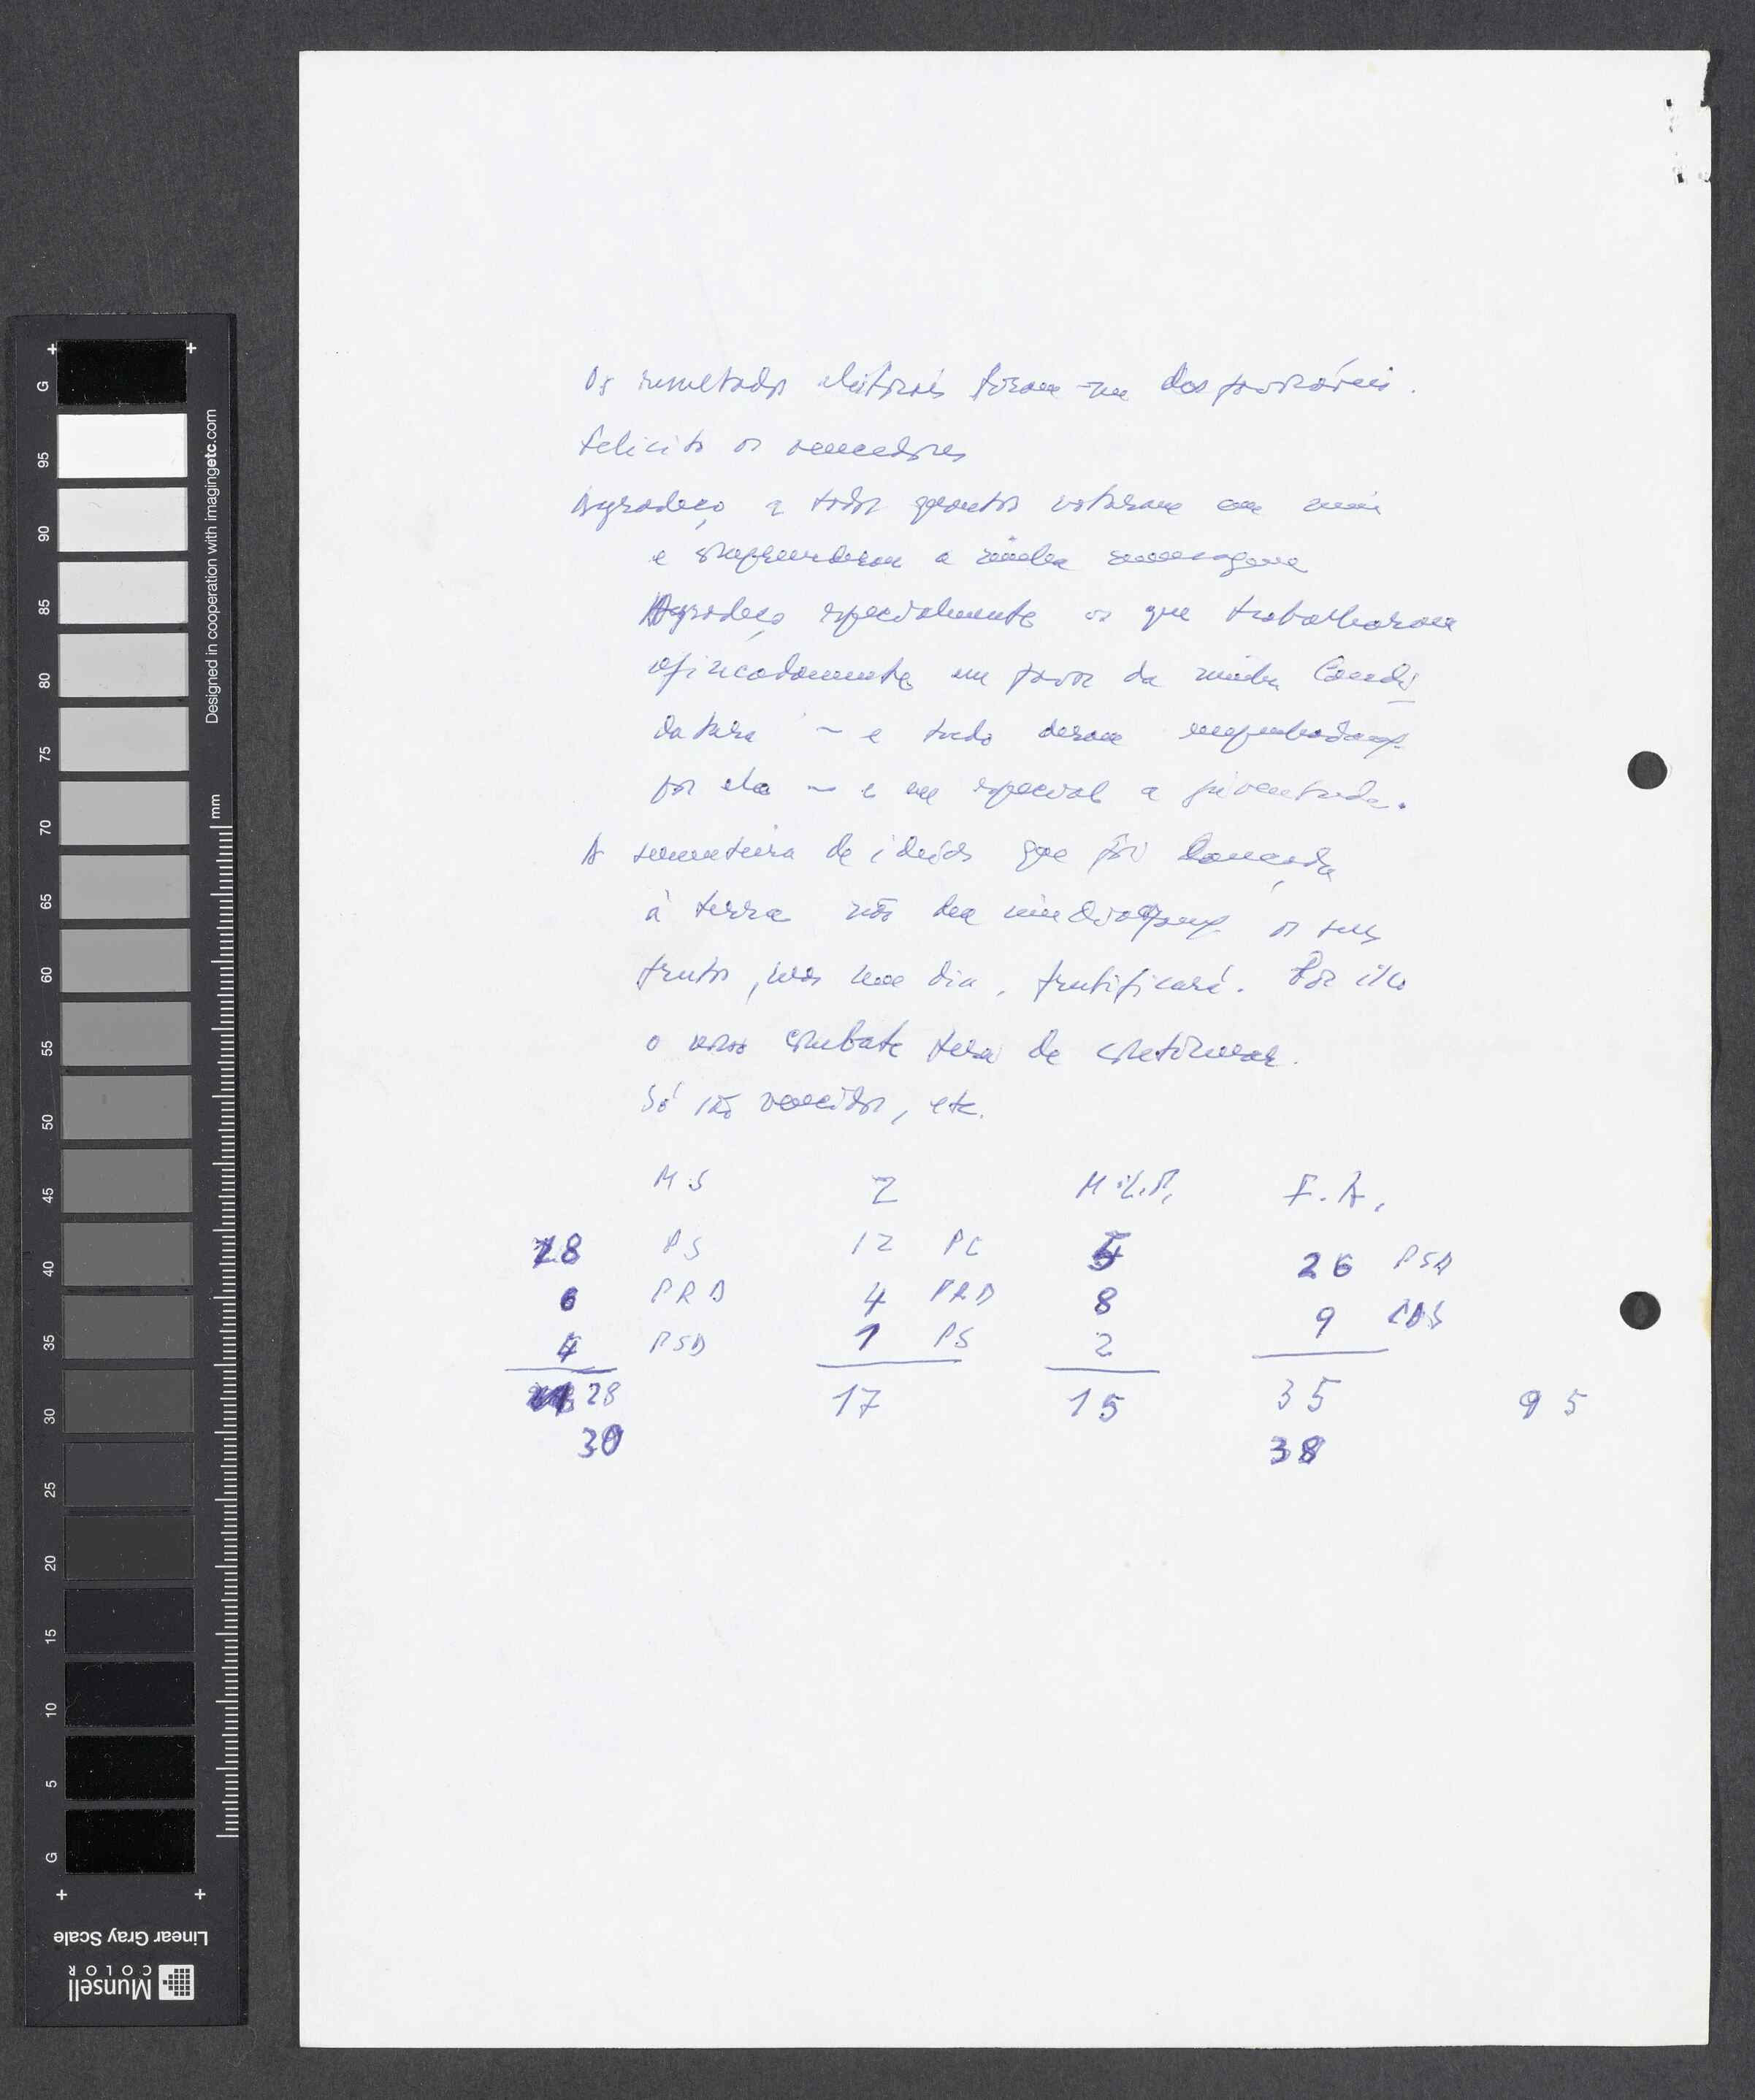 Os resultados eleitorais foram-me desfavoráveis.
Felicito os vencedores
Agradeço a todos quantos votaram em mim
e compreenderam a minha mensagem
Agradeço especialmente os que trabalharam
afincadamente em favor da minha Candi
datura – e tudo deram
por ela – e em especial a juventude.
A sementeira de ideias que foi lançada
à terra não deu os seus
frutos, mas um dia, frutificará. Por isso
o nosso combate terá de continuar.
Só são vencidos, etc.
M.S Z M.L.P. F.A.
18 PS 12 PC 5 26 PSD
6 PRD 4 PRD 8 9 CDS
4 PSD 1 PS 2
28 17 15 35 95
30 38
G 95 90 85 80 75 70 65 60 55 50 45 40 35 30 25 20 15 10 5 G
mm
Designed in cooperation with imagingetc.com
Linear Gray Scale
Munsell
COLOR